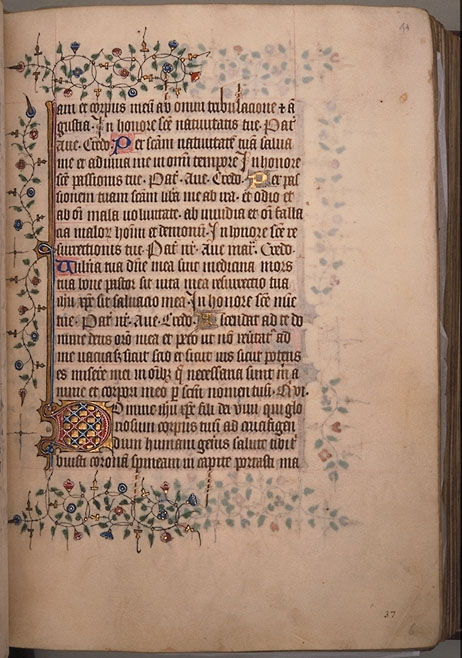 44
am et corpus meū ab omni tribulacione et ā
gustia. In honore sc̄e natiuitatis tue. Pat̄
Aue. Credo. Per sc̄am natiuitatē tuā salua
me et adiuua me in om̄i tempore In honore
sc̄e passionis tue. Pat̄. Aue. Credo. Per pas
sionem tuam sc̄am libera me ab ira. et odio et
ab om̄i mala voluntate. ab inuidia et om̄i falla
cia malor̄ hoīm et demonū. In honore sc̄e re
surrectionis tue. Pat̄ nr̄. Aue mar̄. Credo.
tua dn̄e mea sint medicina mors
tua bone pastor sit uita mea resurrectio tua
ihu xp̄e sit saluacio mea. In honore sc̄e
tue. Pat̄ nr̄. Aue. Credo. Ascendat ad te do
mine deus oro mea et peto ut nō reūtat̄ ad
me uacua sicut scio et sicut uis sicut potens
es misere mei in oībꝫ q̄ necessaria sunt
anime et corpori meo p̄ sc̄m nomen tuū. Qui.
Omine ihu xp̄e fili dei viui qui glo
riosum corpus tuū ad crucifigen
dum humani gen̄is salute
tuisti coronā spineam in capite portasti
37